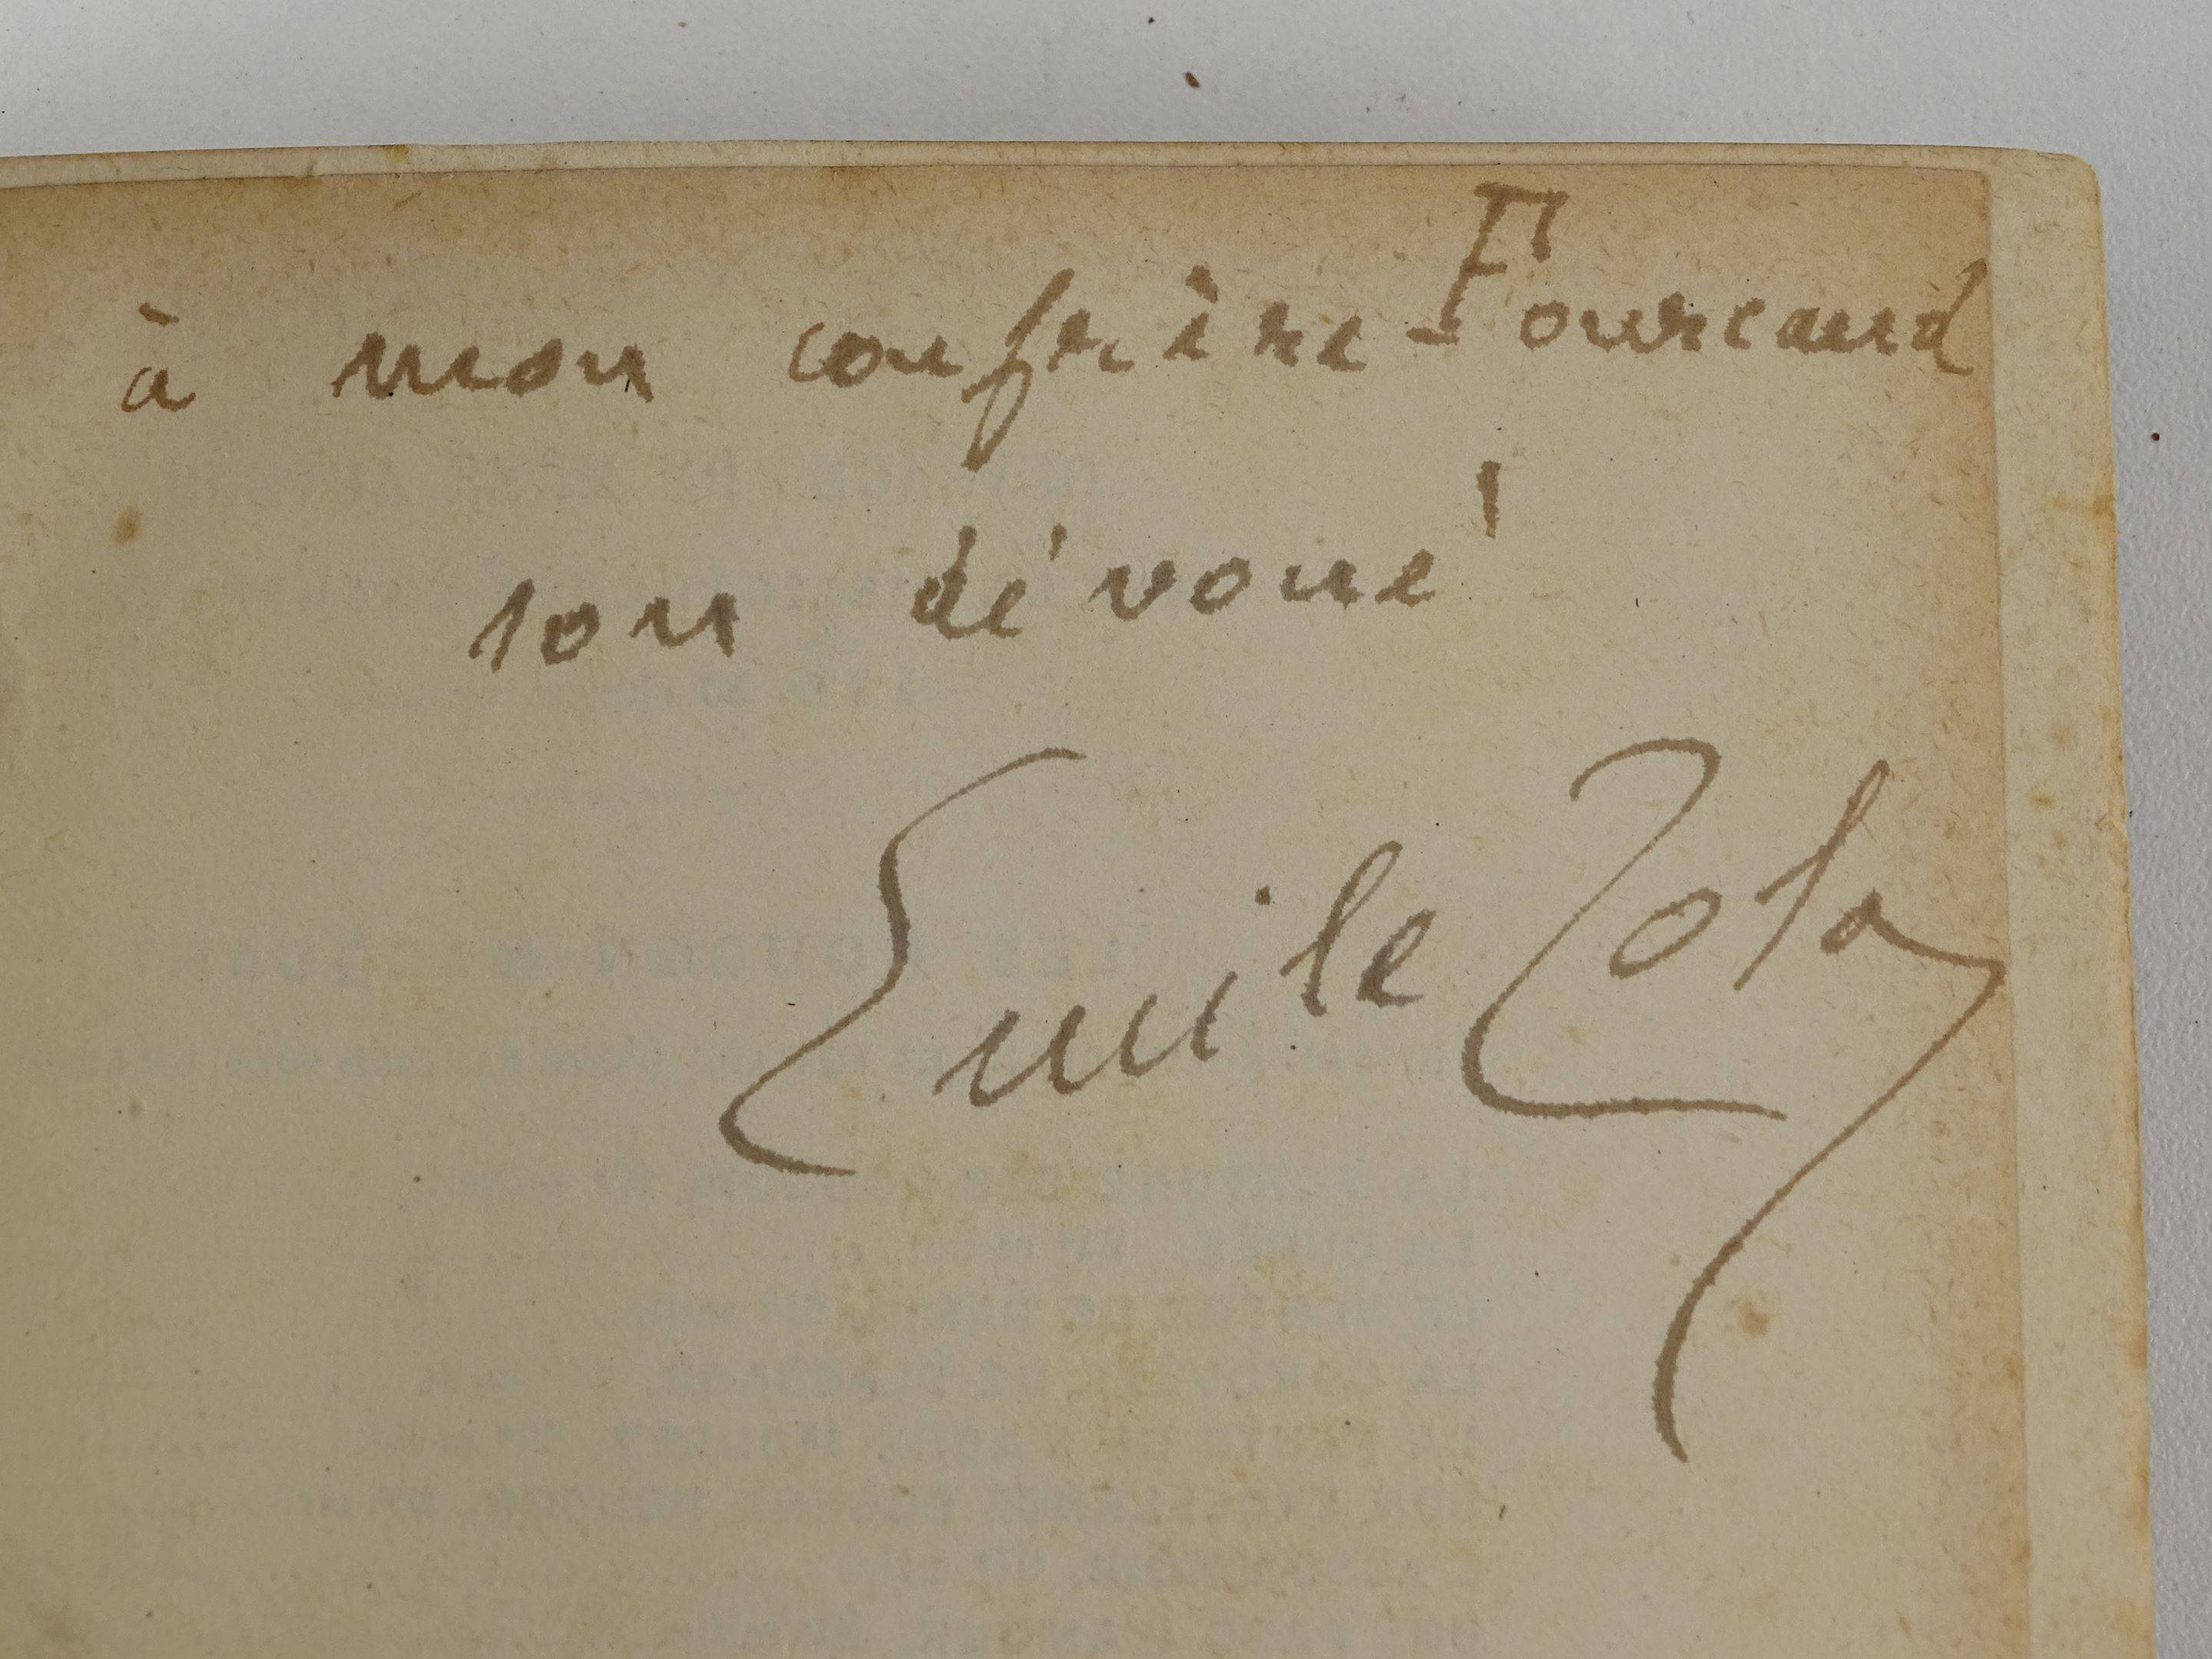 à mon confrère Fourcaud
son dévoué
Emile Zola